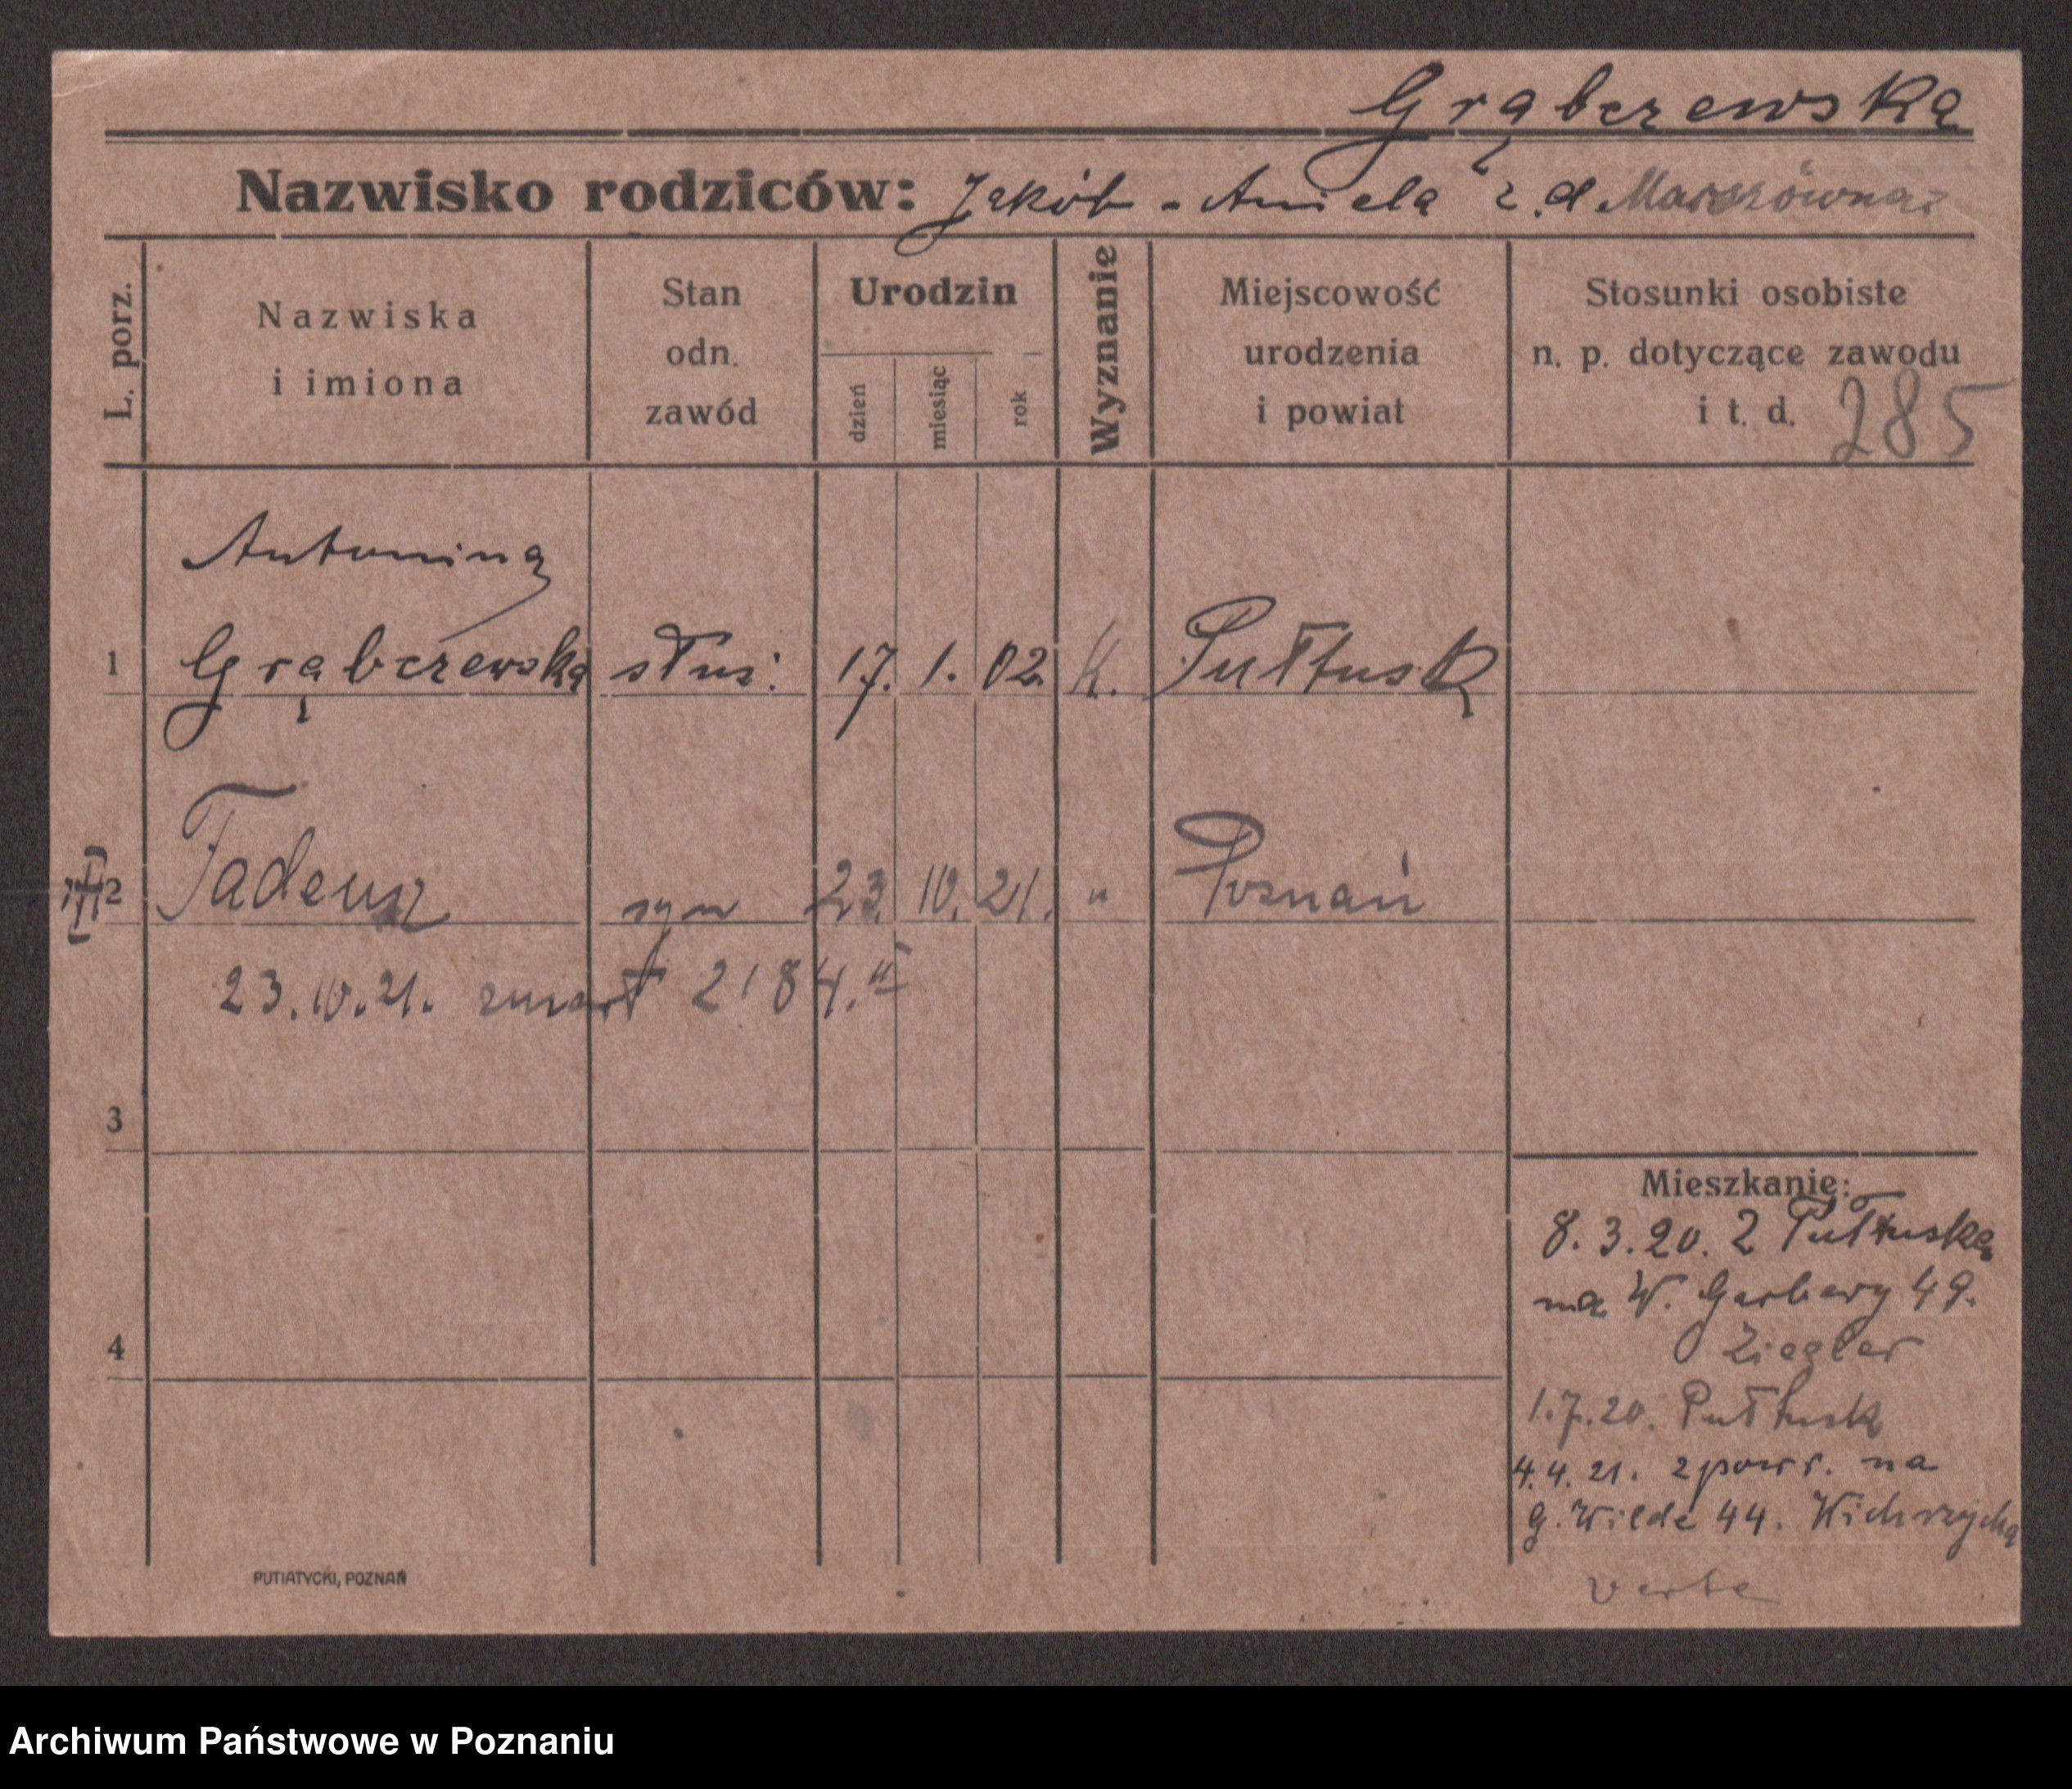 Grąbczewska
Nazwisko rodziców: Jakób - Aniela z.d.
L. porz.
Nazwiska
i imiona
Stan
odn.
zawód
Urodzin
dzień
miesiąc
rok
Wyznanie
Miejscowość
urodzenia
i powiat
Stosunki osobiste
n. p. dotyczące zawodu
i t. d. 285
Antonina
1 Grąbczewska służ. 17. 1. 02. K. Pułtusk
2 Tadeusz syn 23. 10. 21. " Poznań
23.10.21. zmarł 2184.II
3
4
Mieszkanie:
8.3.20. z Pułtuska
na W. Garbary 49.
Ziegler
1.7.20. Pułtusk
4.4.21. z powr. na
G. Wilde 44. Wichrzycka
verte
PUTIATYCKI, POZNAŃ
Archiwum Państwowe w Poznaniu